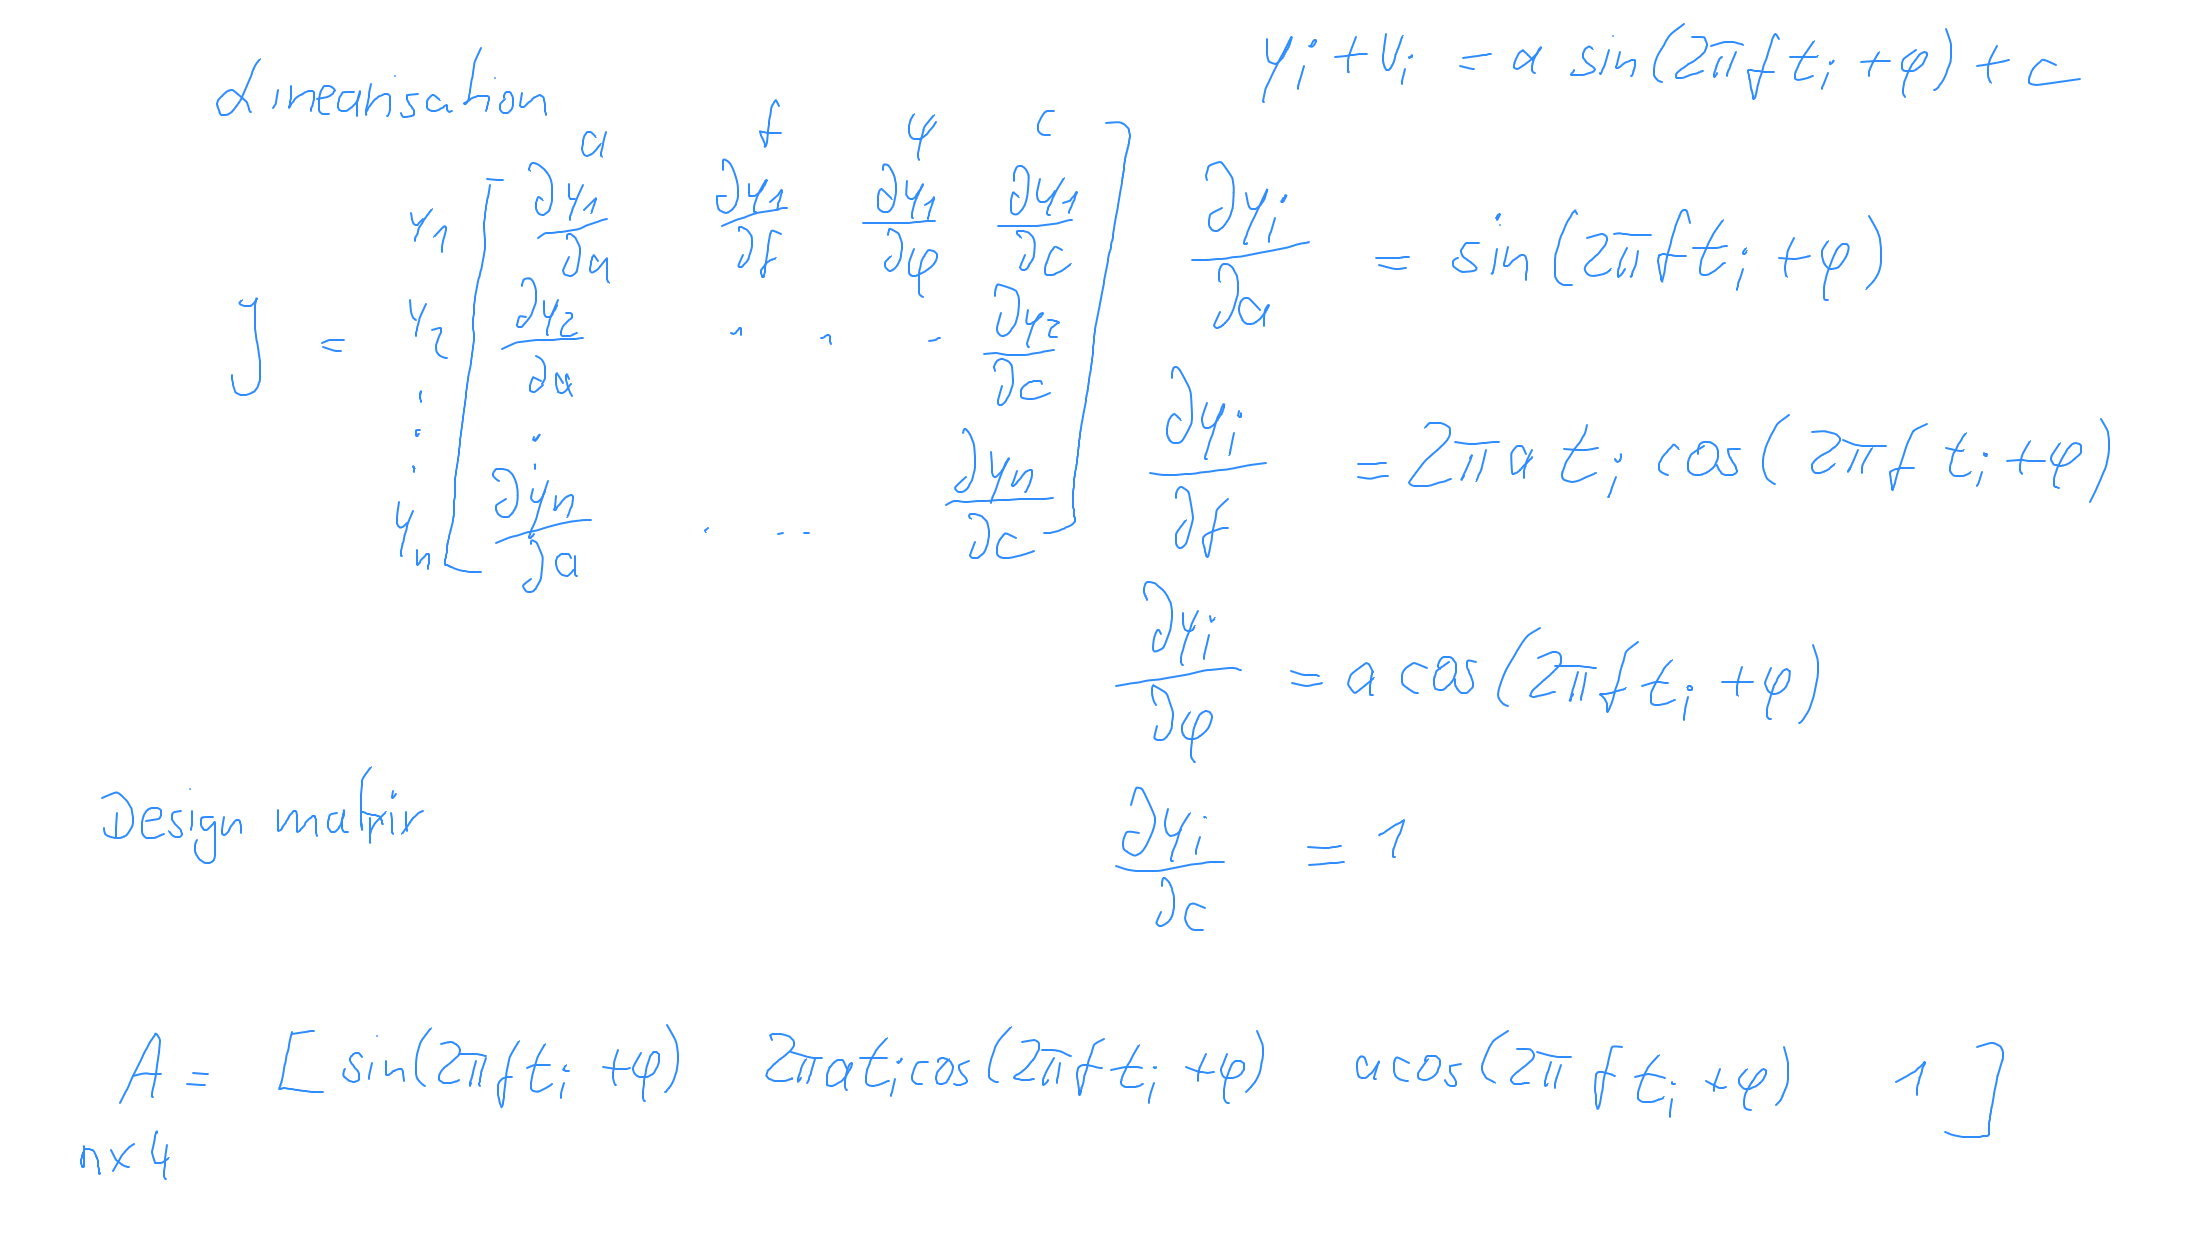 Linearisation
y_i + v_i = a sin(2πf t_i + φ) + c
a f φ c
y_1 ∂y_1/∂a ∂y_1/∂f ∂y_1/∂φ ∂y_1/∂c
J = y_2 [ ∂y_2/∂a . . . ∂y_2/∂c ]
⋮ ⋮
y_n ∂y_n/∂a . . . ∂y_n/∂c
∂y_i/∂a = sin(2πf t_i + φ)
∂y_i/∂f = 2πa t_i cos(2πf t_i + φ)
∂y_i/∂φ = a cos(2πf t_i + φ)
∂y_i/∂c = 1
Design matrix
A = [ sin(2πf t_i + φ) 2πa t_i cos(2πf t_i + φ) a cos(2πf t_i + φ) 1 ]
n×4